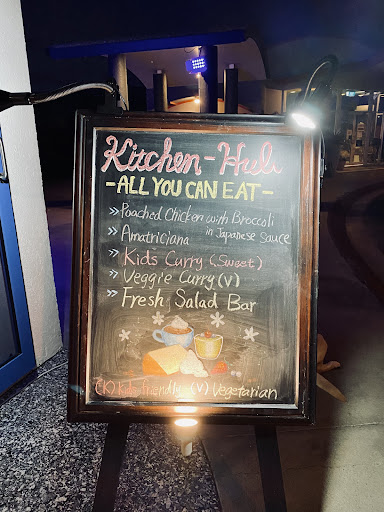 Kitchen-Hulı
-ALL YOU CAN EAT-
» Poached Chicken with Broccoli
in Japanese Sauce
» Amatriciana
» Kid's Curry (Sweet)
» Veggie Curry (V)
» Fresh Salad Bar
(K) kids friendly (V) Vegetarian